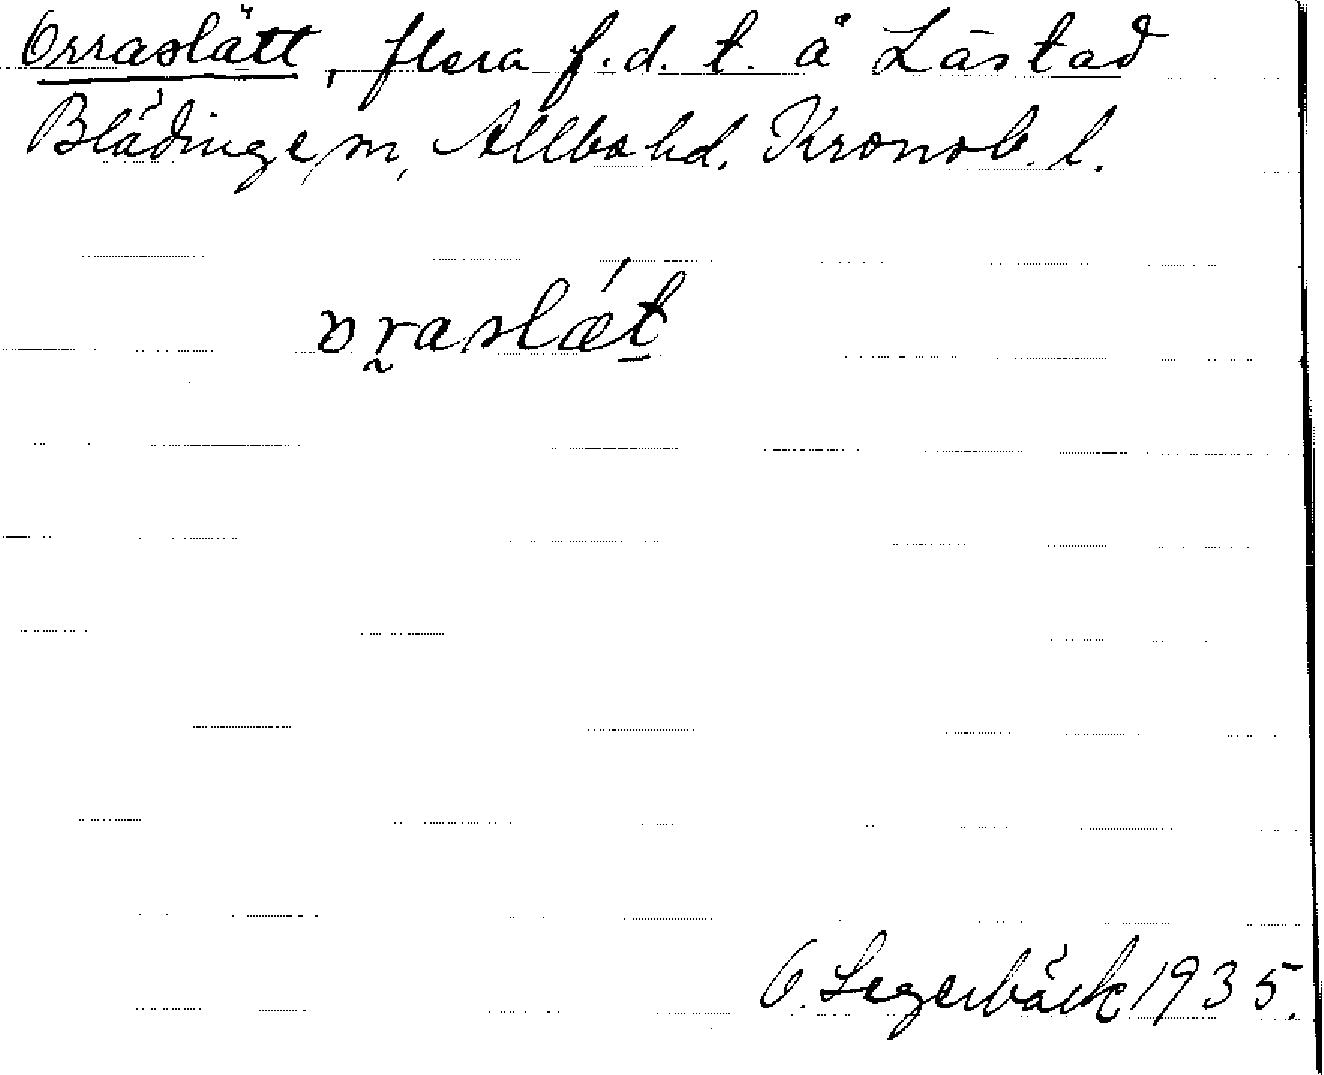 Orraslätt, flera f.d. t. å Låstad
Blädinge sn, Allbo hd. Kronob. l.
vraslæt
O. Segerbäck 1935.